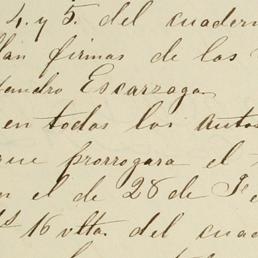 4. y 5. del cuadern
llan firmas de los
jandro Escarzaga.
en todos los autos
que prorrogara el
n el de 28 de Fe
16 vlta. del cuad